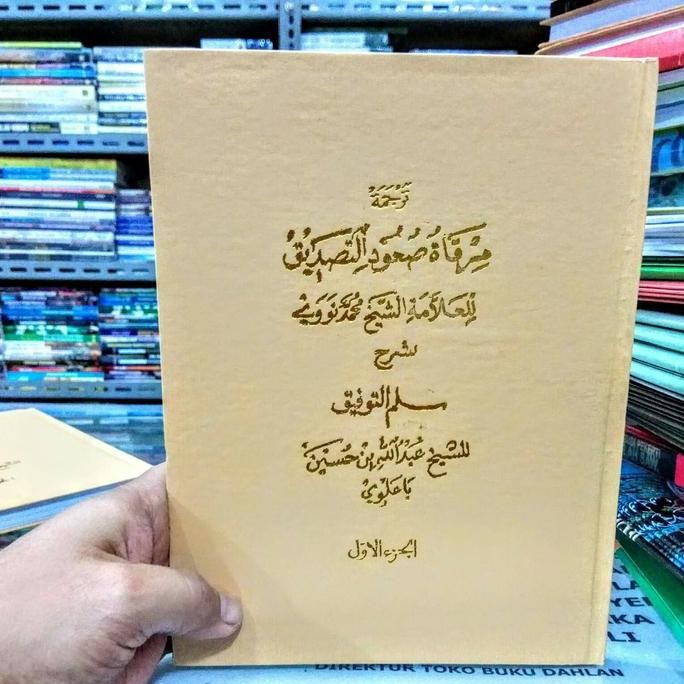 تَرْجَمَةْ
مِرْقَاةُ صُعُوْدِ التَّصْدِيْقْ
لِلْعَلَّامَةِ الشَّيْخ مُحَمَّدْ نَوَوِيْ
شرح
سلم التوفيق
للشيخ عَبْدُاللهِ بِنْ حُسَيْن
بَاعَلَوِيْ
الجزء الاول
DIREKTUR TOKO BUKU DAHLAN